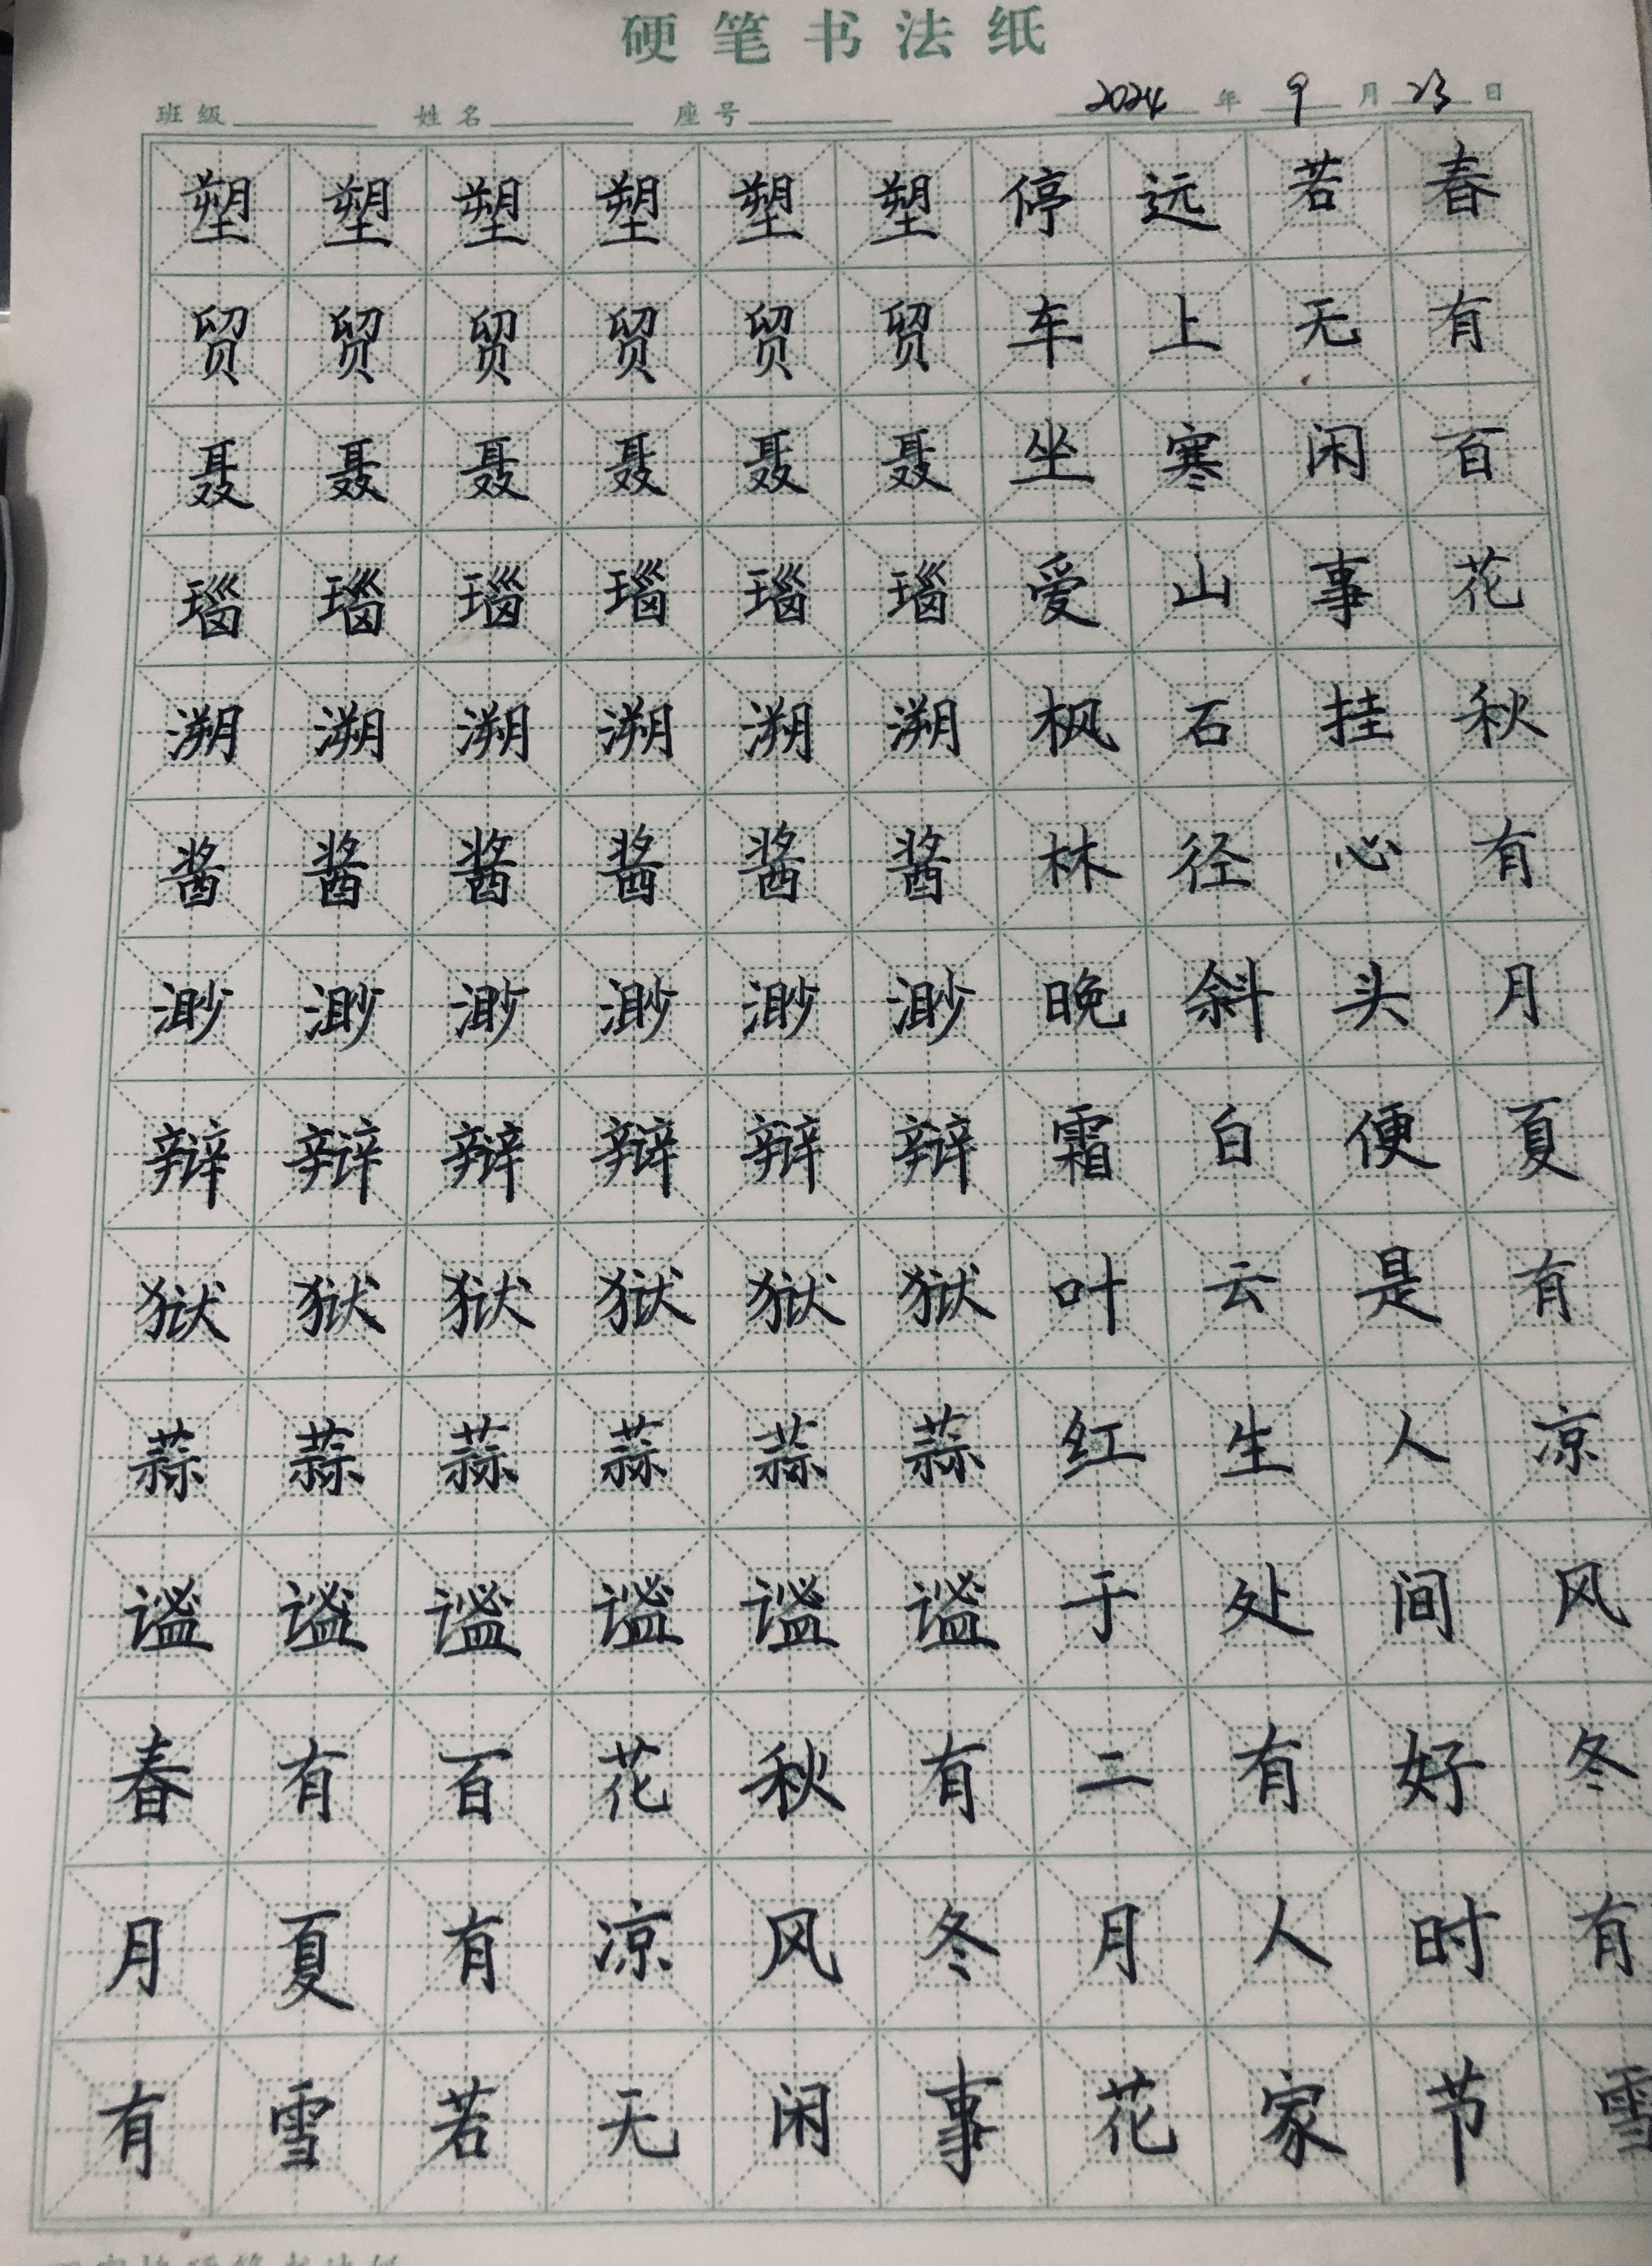 硬笔书法纸
班级 姓名 座号 2024年9月23日
塑塑塑塑塑塑停远若春
贸贸贸贸贸贸车上无有
聂聂聂聂聂聂坐寒闲百
瑙瑙瑙瑙瑙瑙爱山事花
溯溯溯溯溯溯枫石挂秋
酱酱酱酱酱酱林径心有
渺渺渺渺渺渺晚斜头月
辩辩辩辩辩辩霜白便夏
狱狱狱狱狱狱叶云是有
蒜蒜蒜蒜蒜蒜红生人凉
谧谧谧谧谧谧于处间风
春有百花秋有二有好冬
月夏有凉风冬月人时有
有雪若无闲事花家节雪